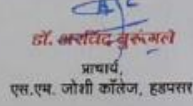 डॉ. अरविंद बुरुंगले
प्राचार्य,
एस.एम. जोशी कॉलेज, हडपसर